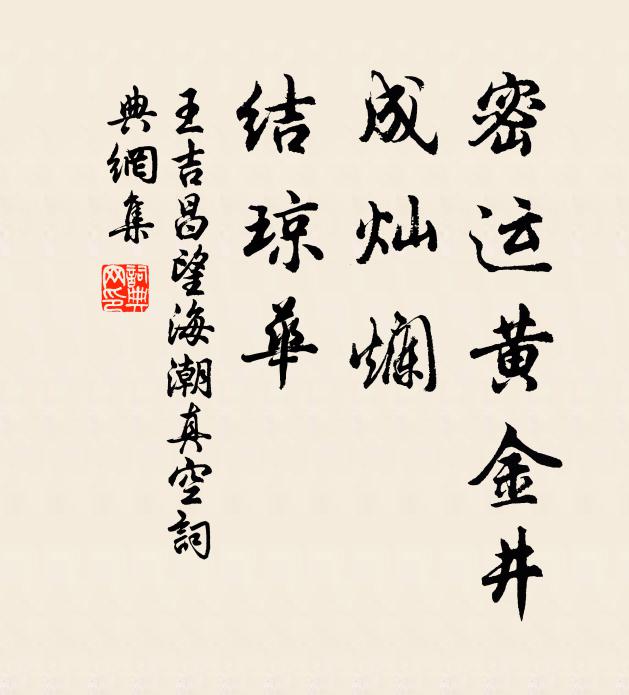 密运黄金井
成灿斓
结琼华
王吉昌望海潮真空詞
典網集
詞典网印